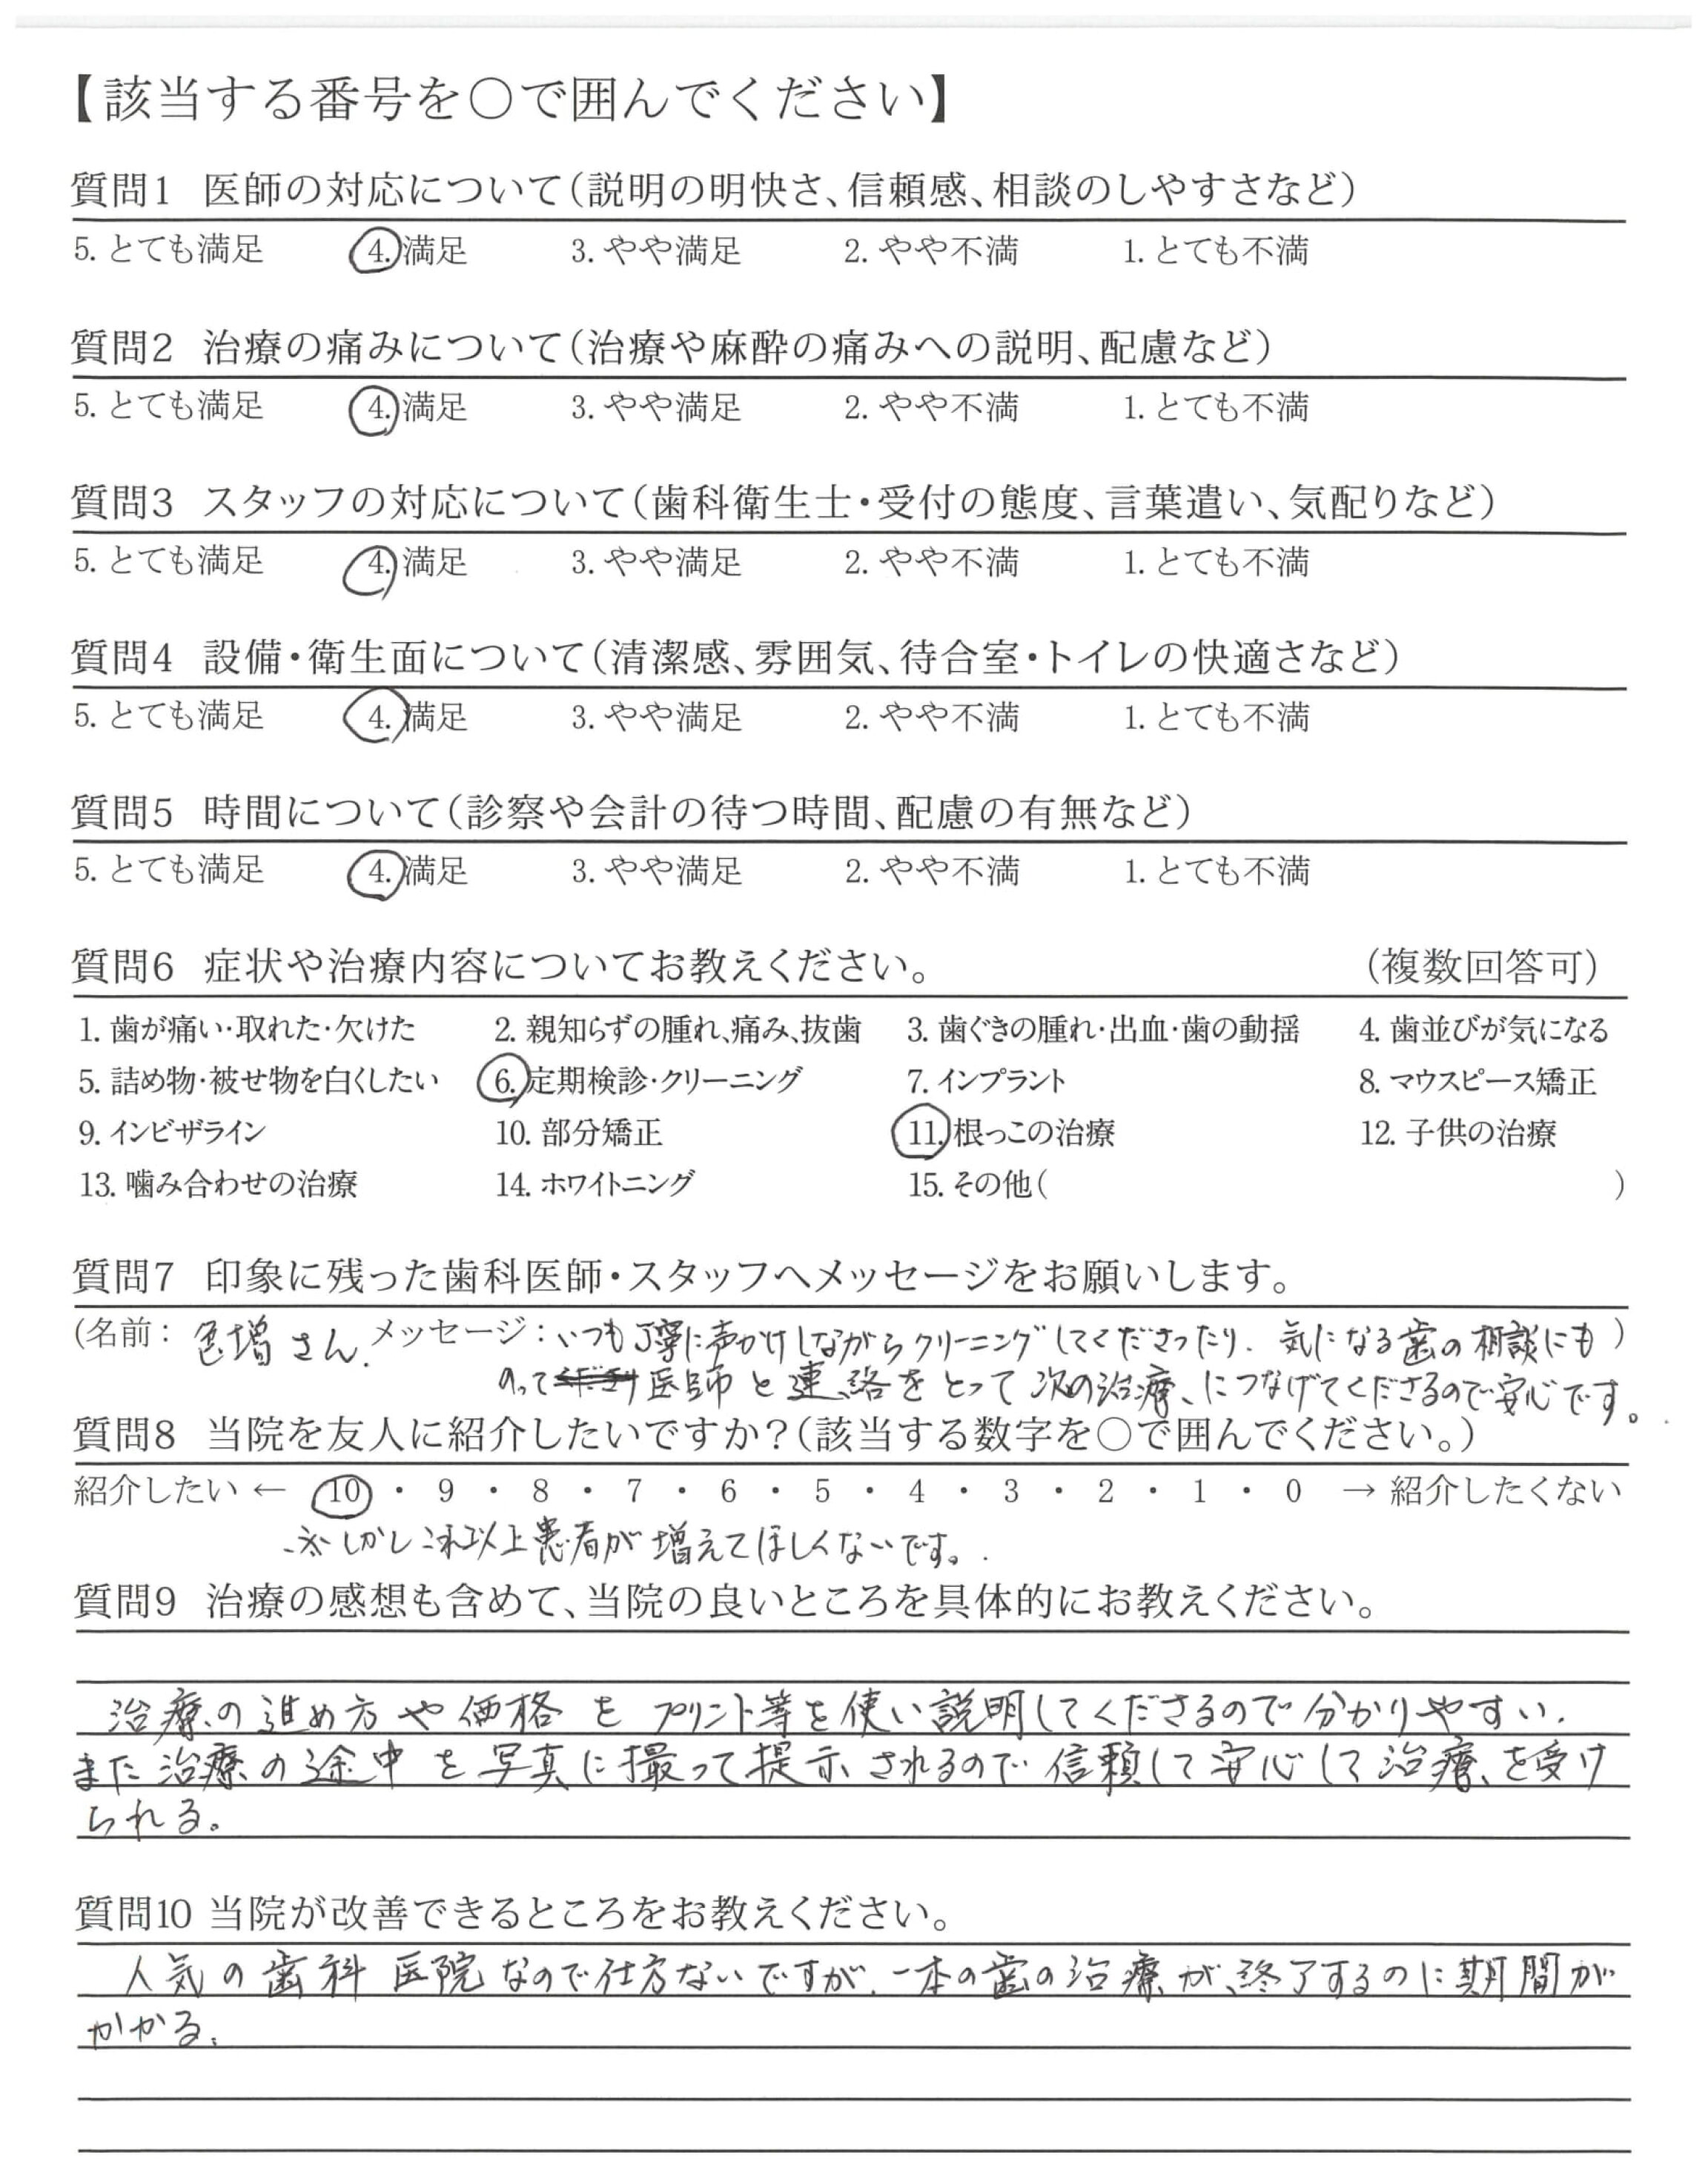 【該当する番号を〇で囲んでください】
質問1 医師の対応について(説明の明快さ、信頼感、相談のしやすさなど)
5. とても満足 4. 満足 3. やや満足 2. やや不満 1. とても不満
質問2 治療の痛みについて(治療や麻酔の痛みへの説明、配慮など)
5. とても満足 4. 満足 3. やや満足 2. やや不満 1. とても不満
質問3 スタッフの対応について(歯科衛生士・受付の態度、言葉遣い、気配りなど)
5. とても満足 4. 満足 3. やや満足 2. やや不満 1. とても不満
質問4 設備・衛生面について(清潔感、雰囲気、待合室・トイレの快適さなど)
5. とても満足 4. 満足 3. やや満足 2. やや不満 1. とても不満
質問5 時間について(診察や会計の待つ時間、配慮の有無など)
5. とても満足 4. 満足 3. やや満足 2. やや不満 1. とても不満
質問6 症状や治療内容についてお教えください。 (複数回答可)
1. 歯が痛い・取れた・欠けた 2. 親知らずの腫れ、痛み、抜歯 3. 歯ぐきの腫れ・出血・歯の動揺 4. 歯並びが気になる
5. 詰め物・被せ物を白くしたい 6. 定期検診・クリーニング 7. インプラント 8. マウスピース矯正
9. インビザライン 10. 部分矯正 11. 根っこの治療 12. 子供の治療
13. 噛み合わせの治療 14. ホワイトニング 15. その他( )
質問7 印象に残った歯科医師・スタッフへメッセージをお願いします。
(名前: 色増さん. メッセージ: いつも丁寧に声かけしながらクリーニングしてくださったり、気になる歯の相談にも)
のって 医師と連絡をとって次の治療につなげてくださるので安心です。
質問8 当院を友人に紹介したいですか?(該当する数字を〇で囲んでください。)
紹介したい ← 10 ・ 9 ・ 8 ・ 7 ・ 6 ・ 5 ・ 4 ・ 3 ・ 2 ・ 1 ・ 0 → 紹介したくない
※しかしこれ以上患者が増えてほしくないです。
質問9 治療の感想も含めて、当院の良いところを具体的にお教えください。
治療の進め方や価格をプリント等を使い説明してくださるので分かりやすい.
また治療の途中を写真に撮って提示されるので信頼して安心して治療を受け
られる。
質問10 当院が改善できるところをお教えください。
人気の歯科医院なので仕方ないですが、一本の歯の治療が終了するのに期間が
かかる.